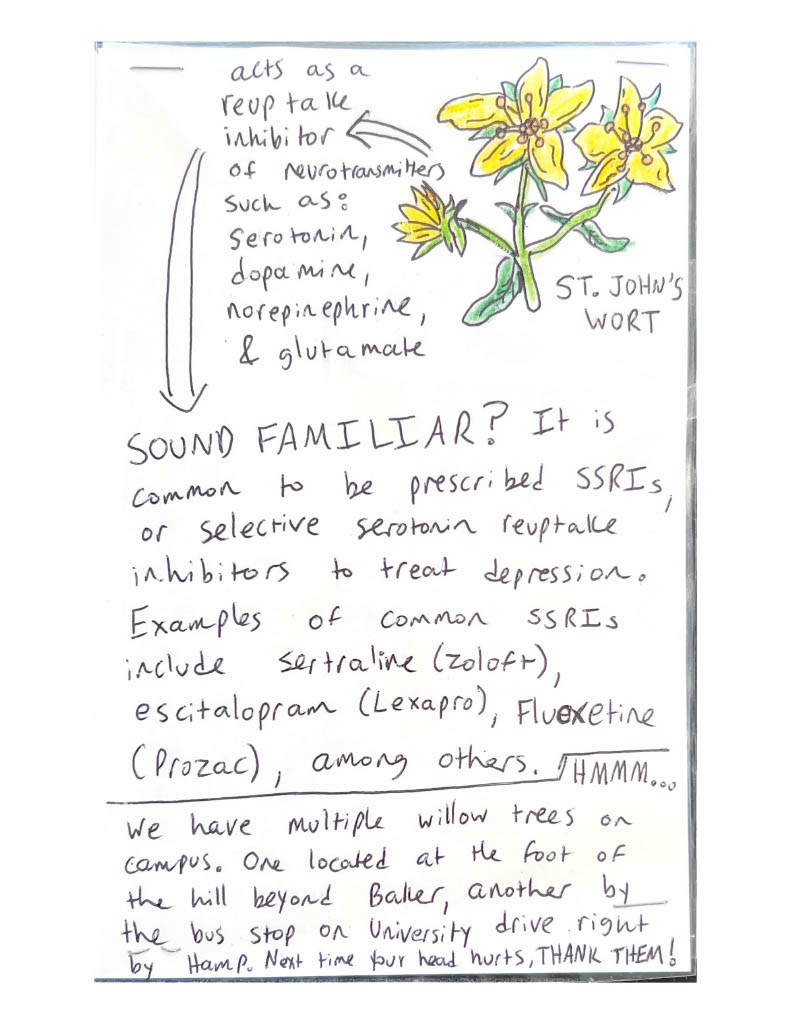 acts as a
reuptake
inhibitor
of neurotransmitters
such as:
serotonin,
dopamine,
norepinephrine,
& glutamate
ST. JOHN'S
WORT
SOUND FAMILIAR? It is
common to be prescribed SSRIs,
or selective serotonin reuptake
inhibitors to treat depression.
Examples of common SSRIs
include sertraline (Zoloft),
escitalopram (Lexapro), Fluexetine
(Prozac), among others. HMMM...
We have multiple willow trees on
campus. One located at the foot of
the hill beyond Baker, another by
the bus stop on University drive right
by Hamp. Next time your head hurts, THANK THEM!